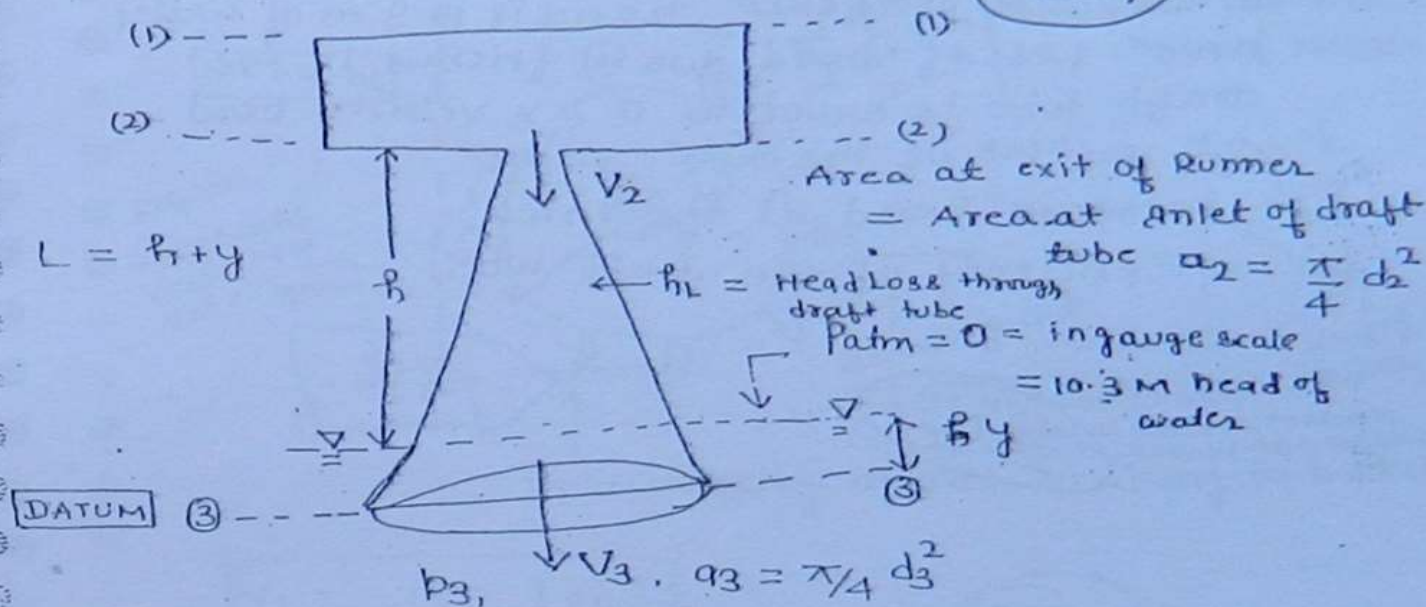 (1) (1)
(2) (2)
V2
Area at exit of Runner
= Area at Inlet of draft
tube a2 = π/4 d2²
L = h+y
h
hL = Head Loss through
draft tube
Patm = 0 = in gauge scale
= 10.3 M head of
water
y
DATUM ③ ③
p3, V3. a3 = π/4 d3²